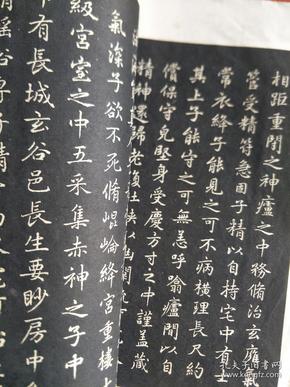 相距重閉之神廬之中務脩治玄膺氣
管受精符急固子精以自持宅中有士
常衣絳子能見之可不病橫理長尺約
其上子能守之可無恙呼翕廬間以自
償保守完堅身受慶方寸之中謹蓋藏
精神還歸老復壯俠以幽闕
氣深子欲不死脩崐崘絳宮重樓十
級宮室之中五采集赤神之子中
有長城玄谷邑長生要眇房中
俗專子精寸田尺宅可治